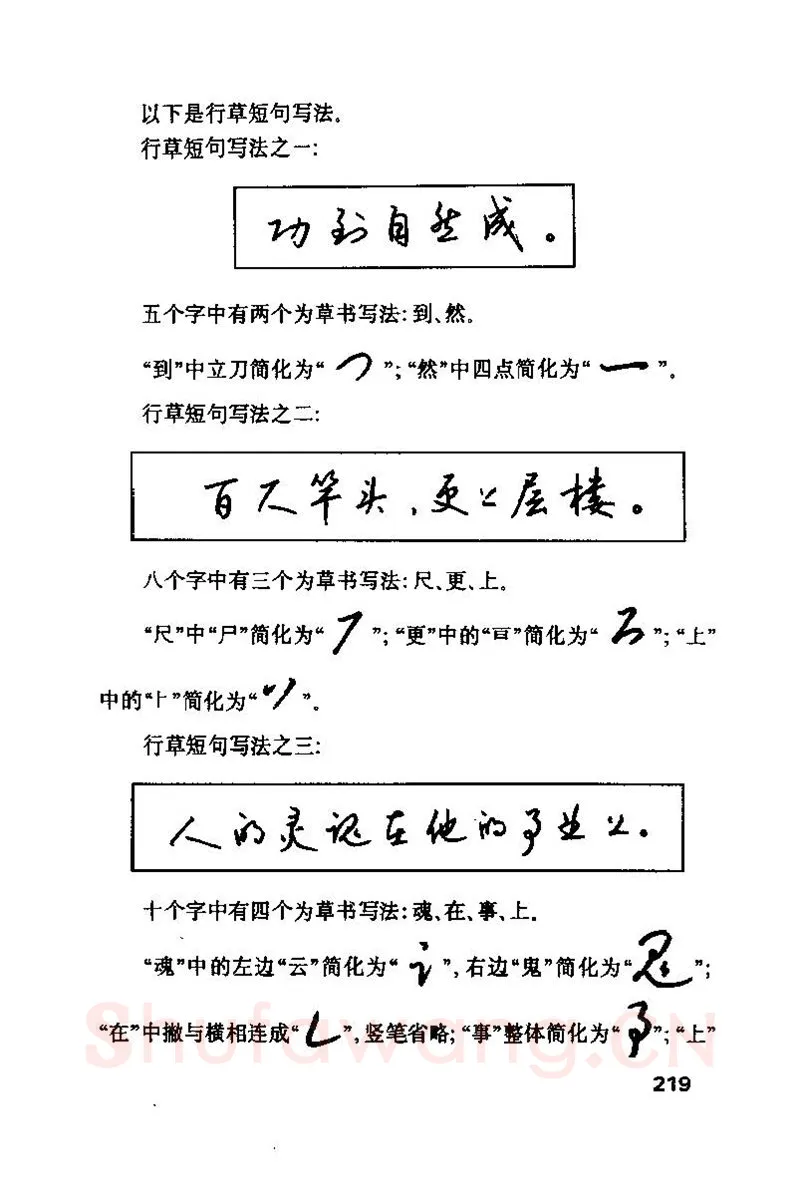 以下是行草短句写法。
行草短句写法之一:
功到自然成。
五个字中有两个为草书写法:到、然。
“到”中立刀简化为“㇇”;“然”中四点简化为“一”。
行草短句写法之二:
百尺竿头,更上层楼。
八个字中有三个为草书写法:尺、更、上。
“尺”中“尸”简化为“”;“更”中的“”简化为“”;“上”
中的“⺊”简化为“”。
行草短句写法之三:
人的灵魂在他的事业上。
十个字中有四个为草书写法:魂、在、事、上。
“魂”中的左边“云”简化为“”,右边“鬼”简化为“”;
“在”中撇与横相连成“”,竖笔省略;“事”整体简化为“”;“上”
Shufawang.CN
219